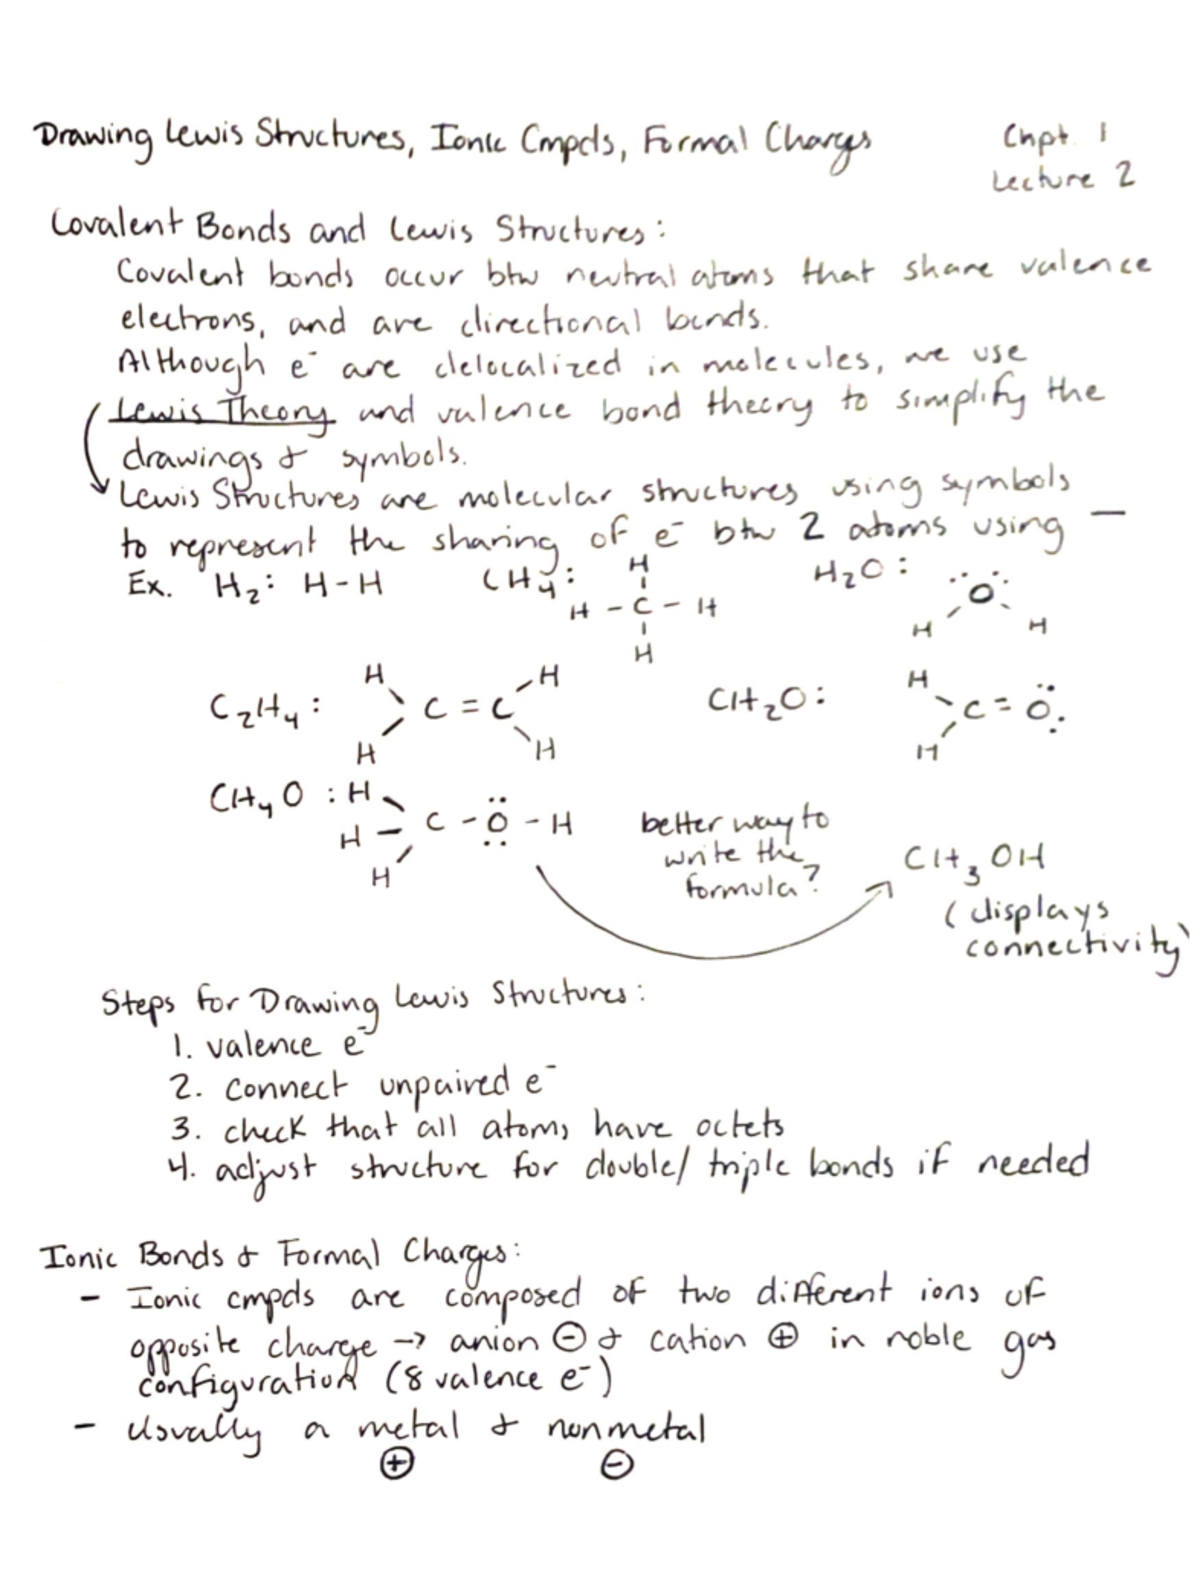 Drawing Lewis Structures, Ionic Cmpds, Formal Charges
Chpt. 1
Lecture 2
Covalent Bonds and Lewis Structures:
Covalent bonds occur btw neutral atoms that share valence
electrons, and are directional bonds.
Although e⁻ are delocalized in molecules, we use
Lewis Theory and valence bond theory to simplify the
drawings & symbols.
Lewis Structures are molecular structures using symbols
to represent the sharing of e⁻ btw 2 atoms using —
Ex. H₂: H-H
CH₄:
H
H - C - H
H
H₂O:
O
H H
C₂H₄:
H H
C = C
H H
CH₂O:
H
C = O
H
CH₄O :
H
H - C - O - H
H
better way to
write the
formula?
CH₃OH
(displays
connectivity)
Steps for Drawing Lewis Structures:
1. valence e⁻
2. connect unpaired e⁻
3. check that all atoms have octets
4. adjust structure for double/ triple bonds if needed
Ionic Bonds & Formal Charges:
- Ionic cmpds are composed of two different ions of
opposite charge → anion ⊖ & cation ⊕ in noble gas
configuration (8 valence e⁻)
- Usually a metal & nonmetal
⊕ ⊖